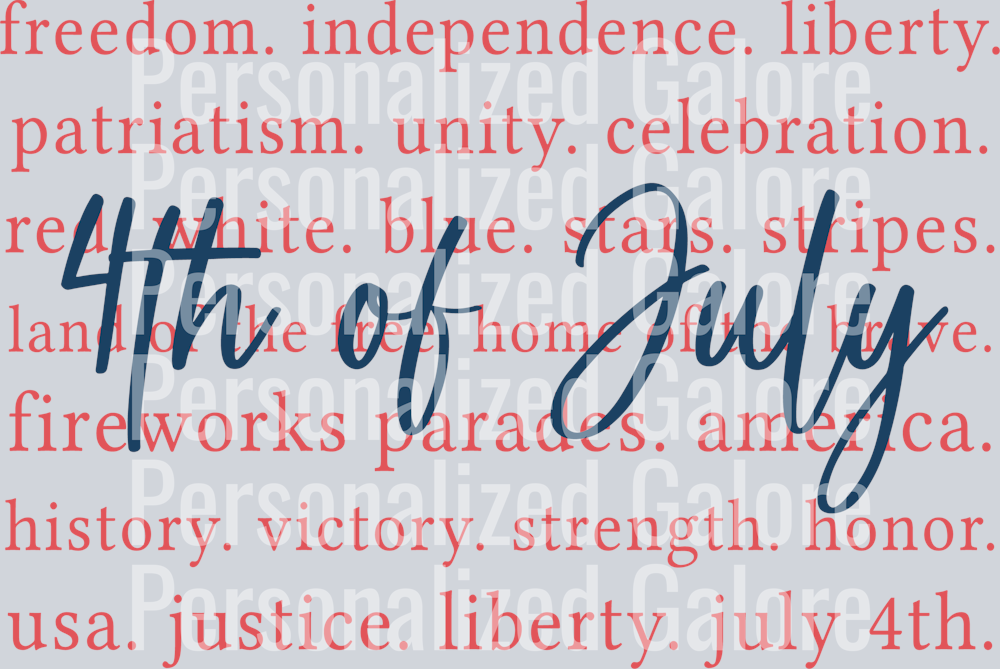 freedom. independence. liberty.
patriatism. unity. celebration.
red. white. blue. stars. stripes.
4th of July
land of the free. home of the brave.
fireworks parades. america.
history. victory. strength. honor.
usa. justice. liberty. july 4th.
Personalized Galore
Personalized Galore
Personalized Galore
Personalized Galore
Personalized Galore
Personalized Galore